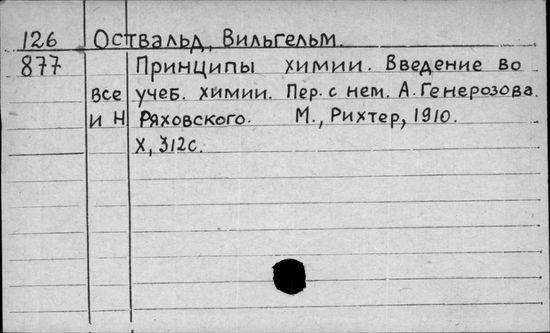 126 Оствальд, Вильгельм.
877 Принципы химии. Введение во
все учеб. химии. Пер. с нем. А. Генерозова
и н Ряховского. М., Рихтер, 1910.
X, 312с.